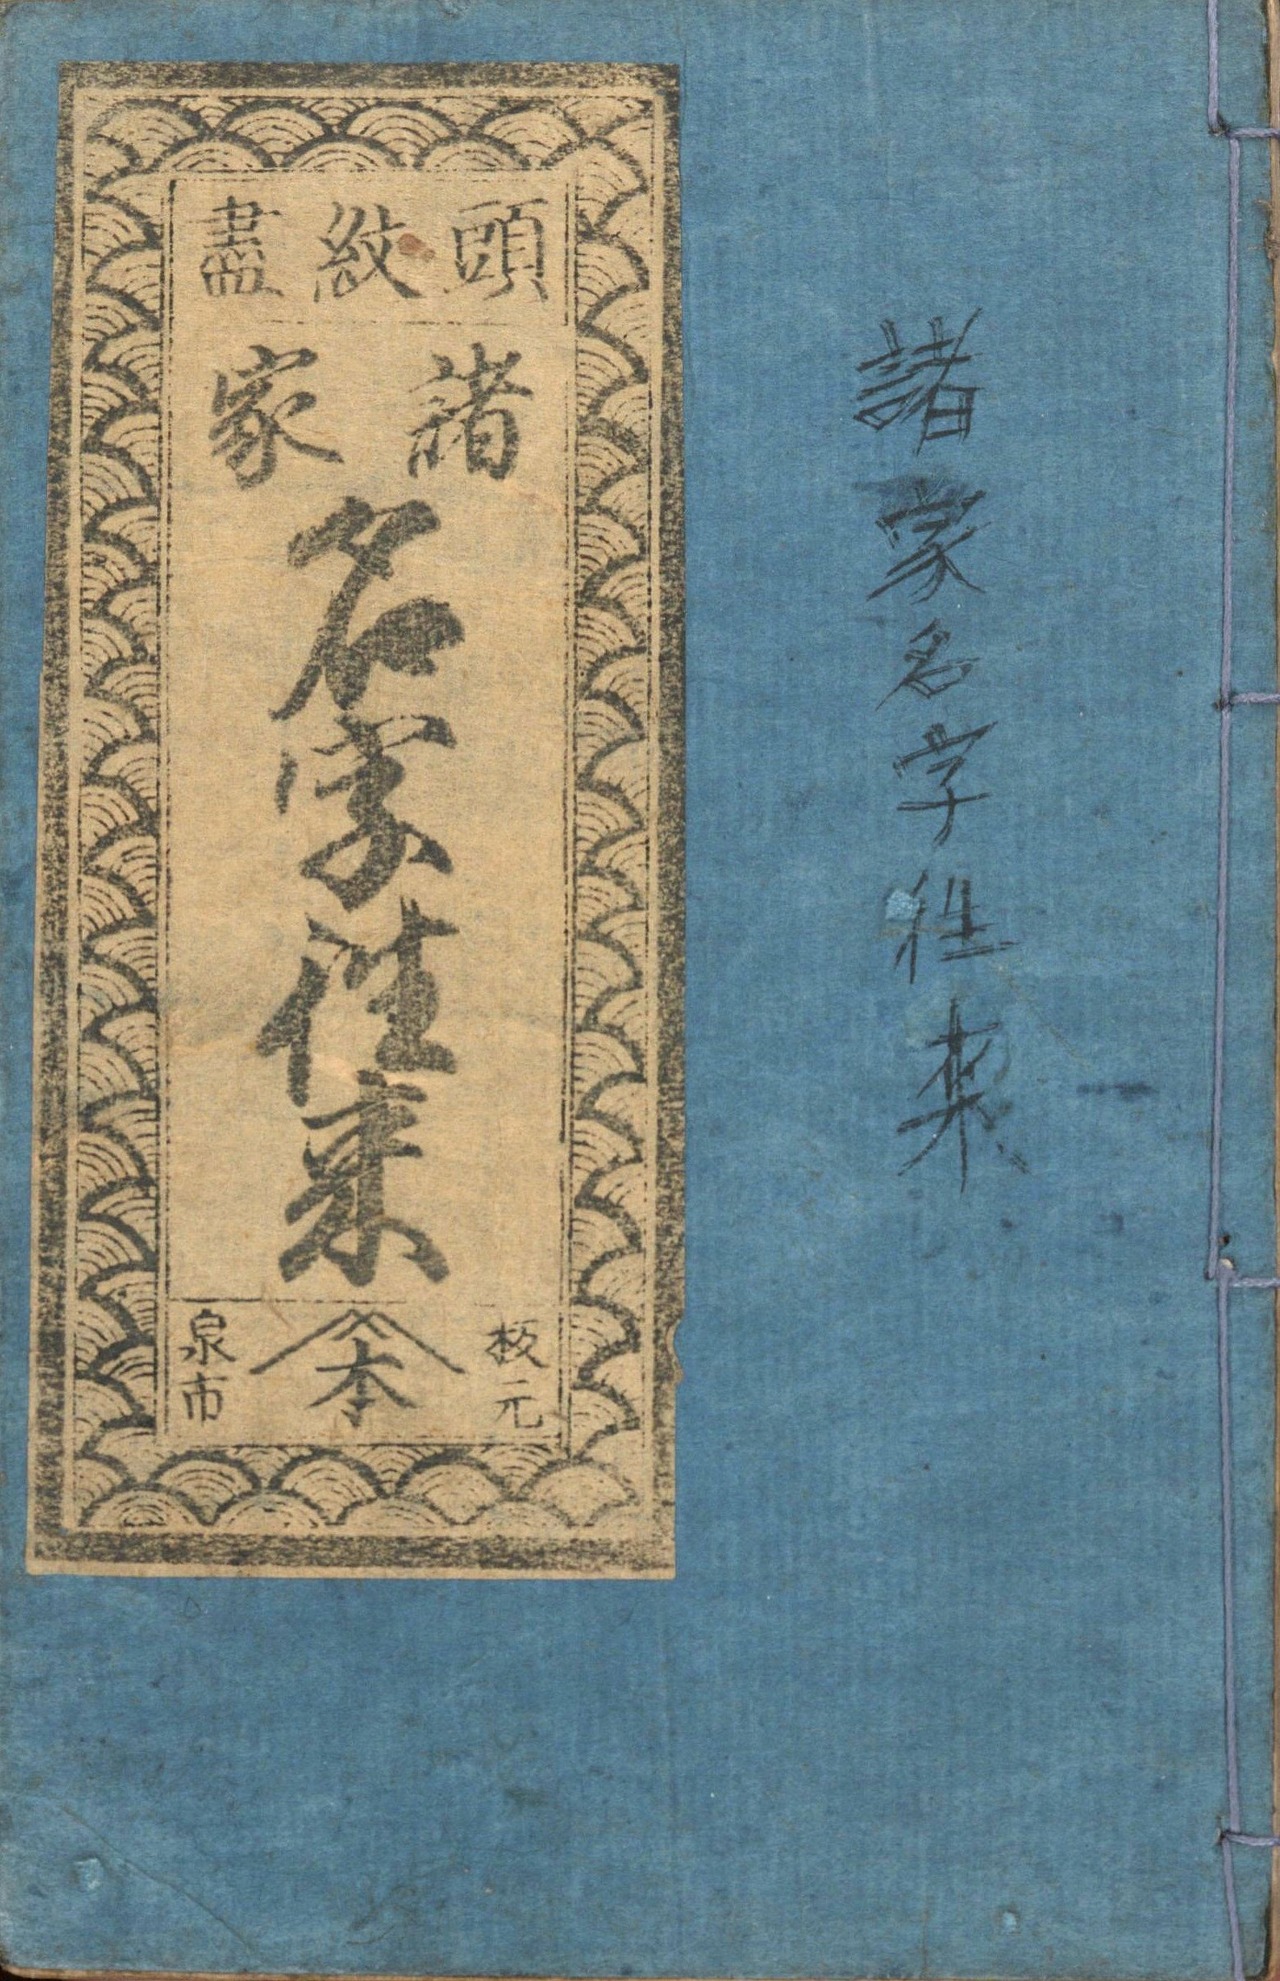 諸家名字往来
頭紋盡
諸家
名字往来
板元
本
泉市